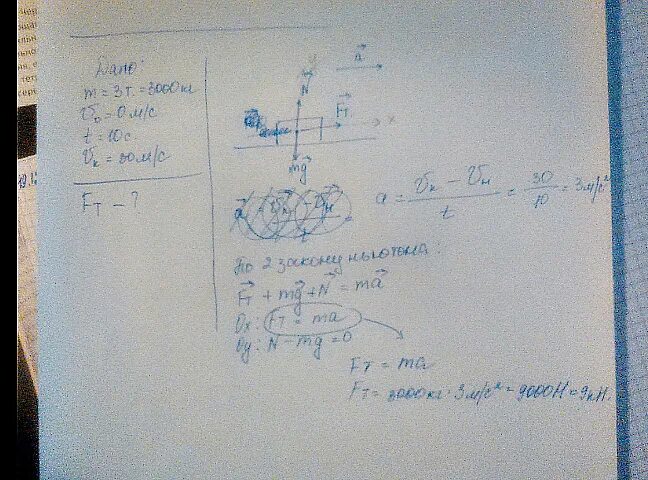 Дано:
m = 3т. = 3000кг
υ₀ = 0м/с
t = 10с
υк = 30м/с
Fт - ?
a⃗
N⃗
F⃗т
x
mg⃗
a = υк - υн / t = 30/10 = 3м/с²
По 2 закону ньютона:
F⃗т + mg⃗ + N⃗ = ma⃗
Ox: Fт = ma
Oy: N - mg = 0
Fт = ma
Fт = 3000кг · 3м/с² = 9000Н = 9кН.